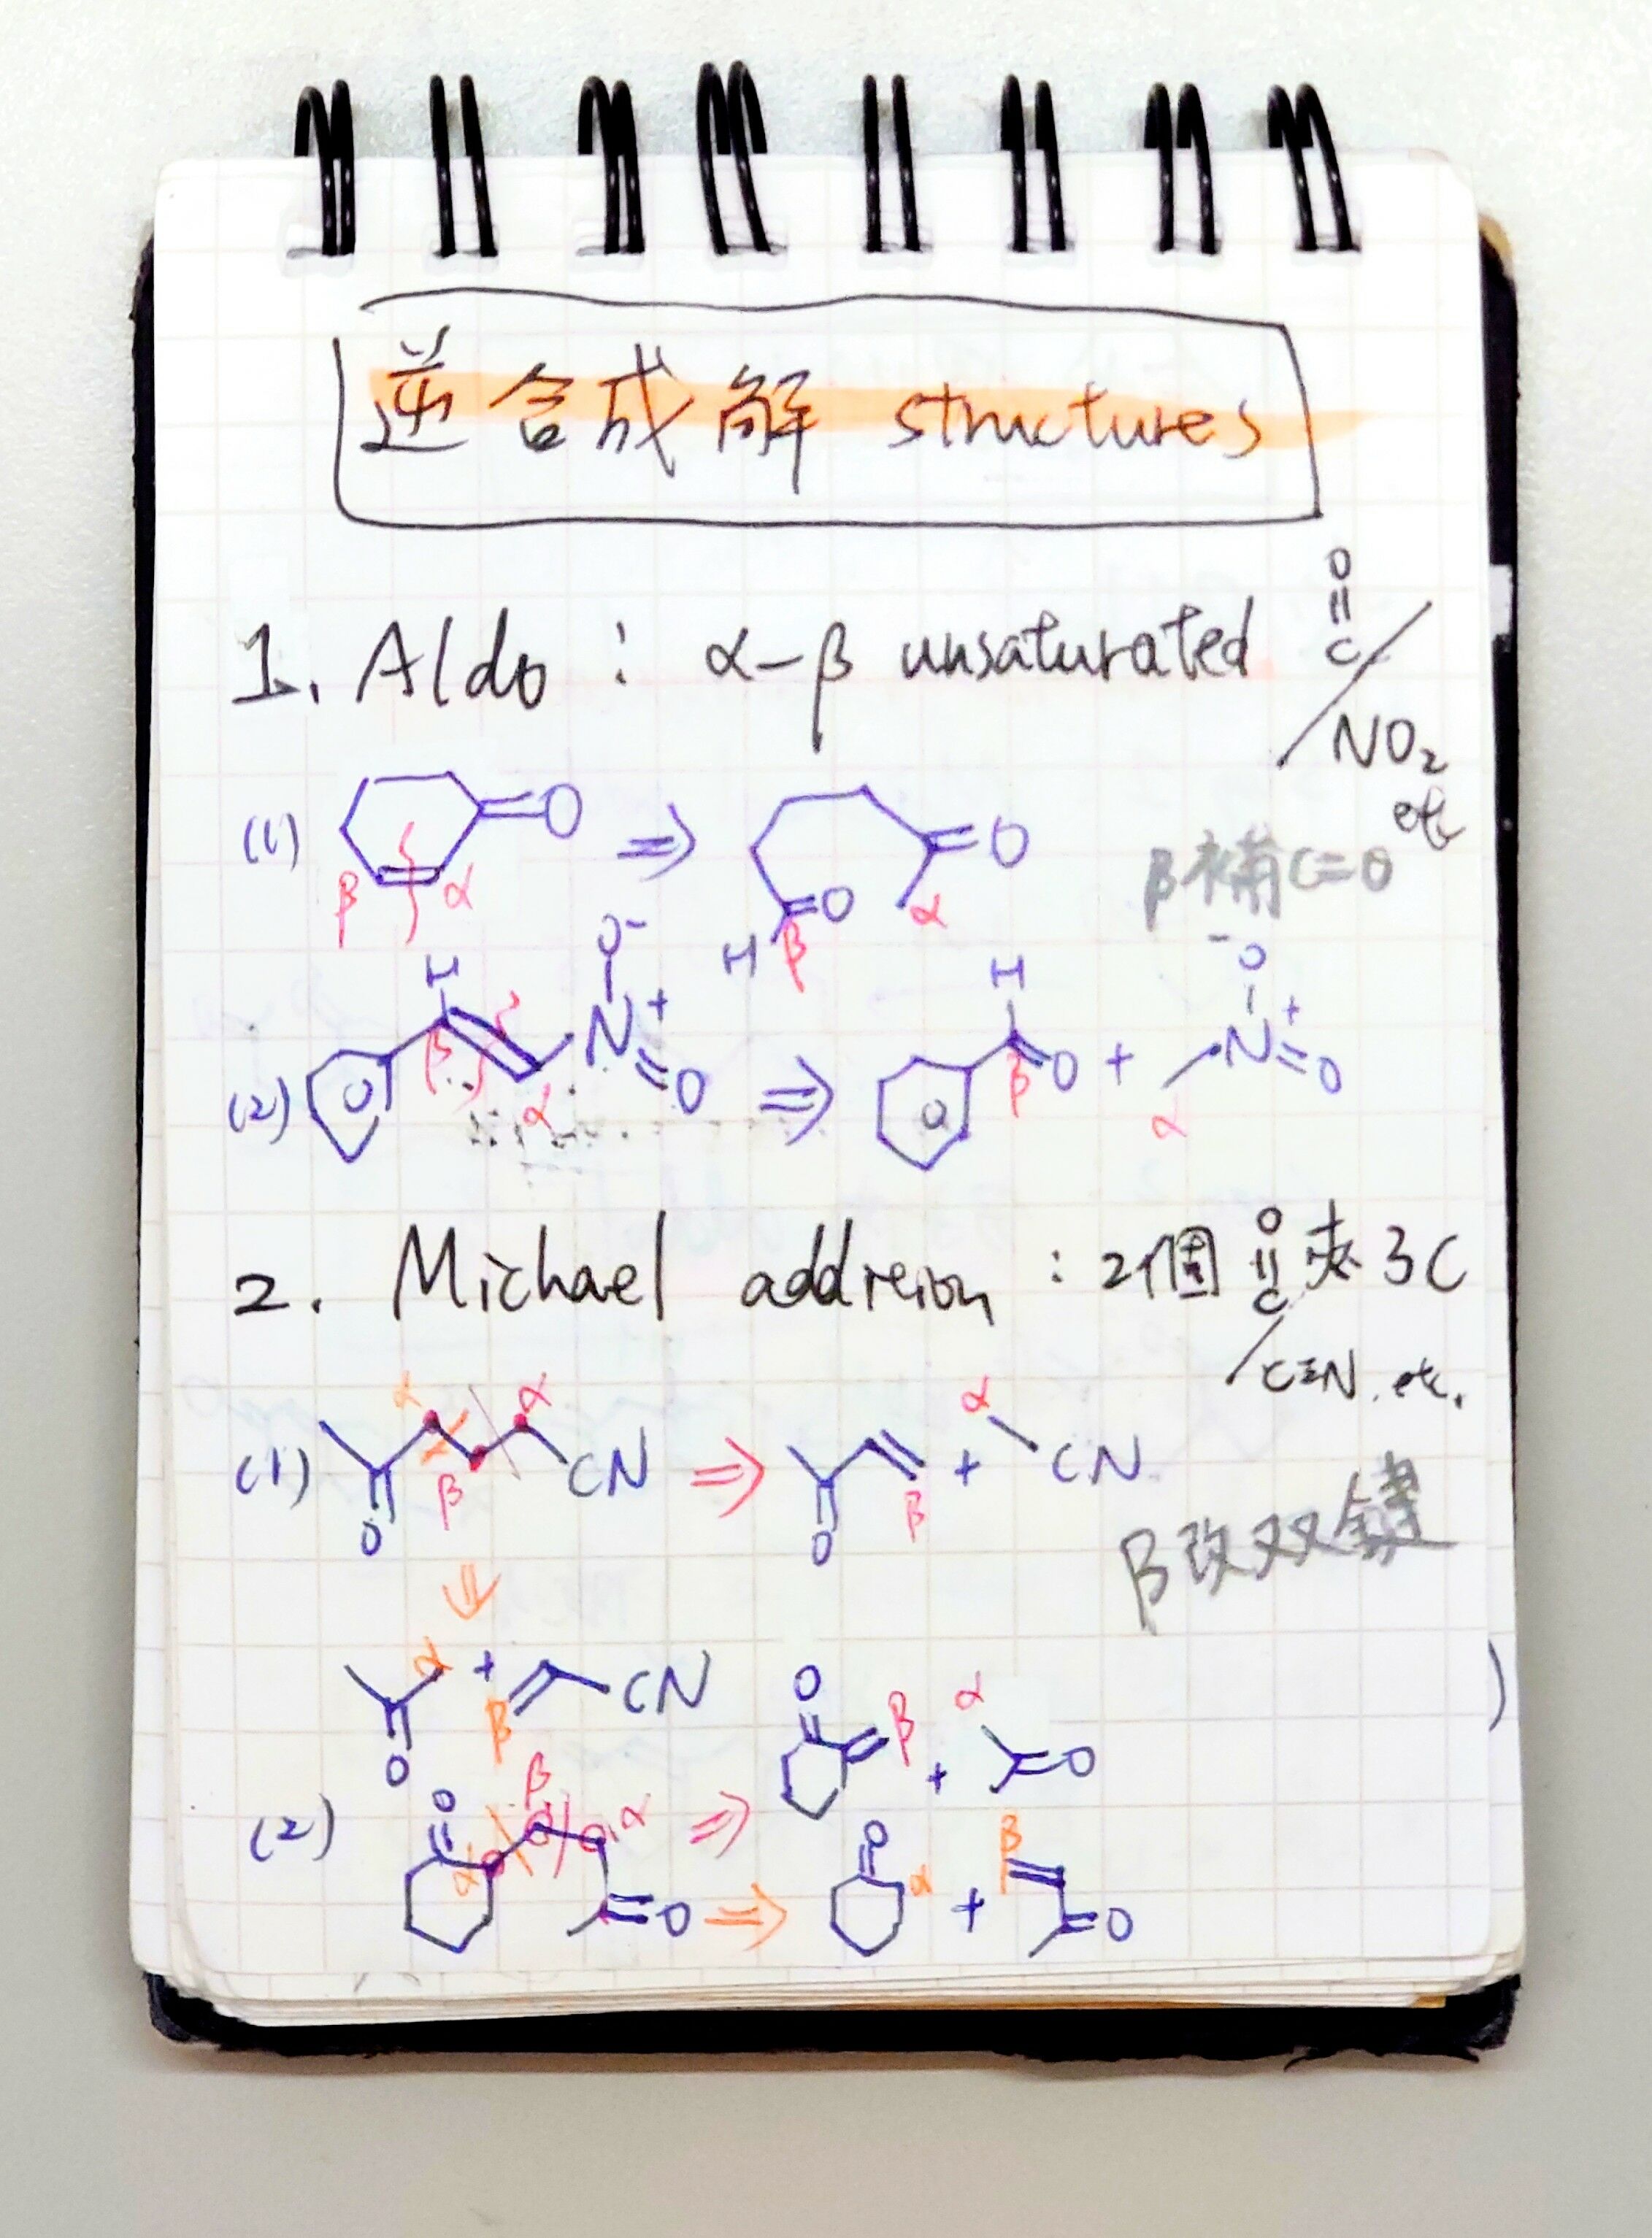 逆合成解 structures
1. Aldo : α-β unsaturated O=C / NO₂ etc
(1) β α O ⇒ O O H β α
β補C=O
(2) H β α O⁻ N⁺ O ⇒ H β O + α ⁻O N⁺ O
2. Michael addreion : 2個 O=C 夾 3C
/ C≡N. etc.
(1) α β α O CN ⇒ O β + α CN
β改双鍵
⇓
α O + β CN
(2) O α β α O ⇒ O β + α O
⇒ O α + β O